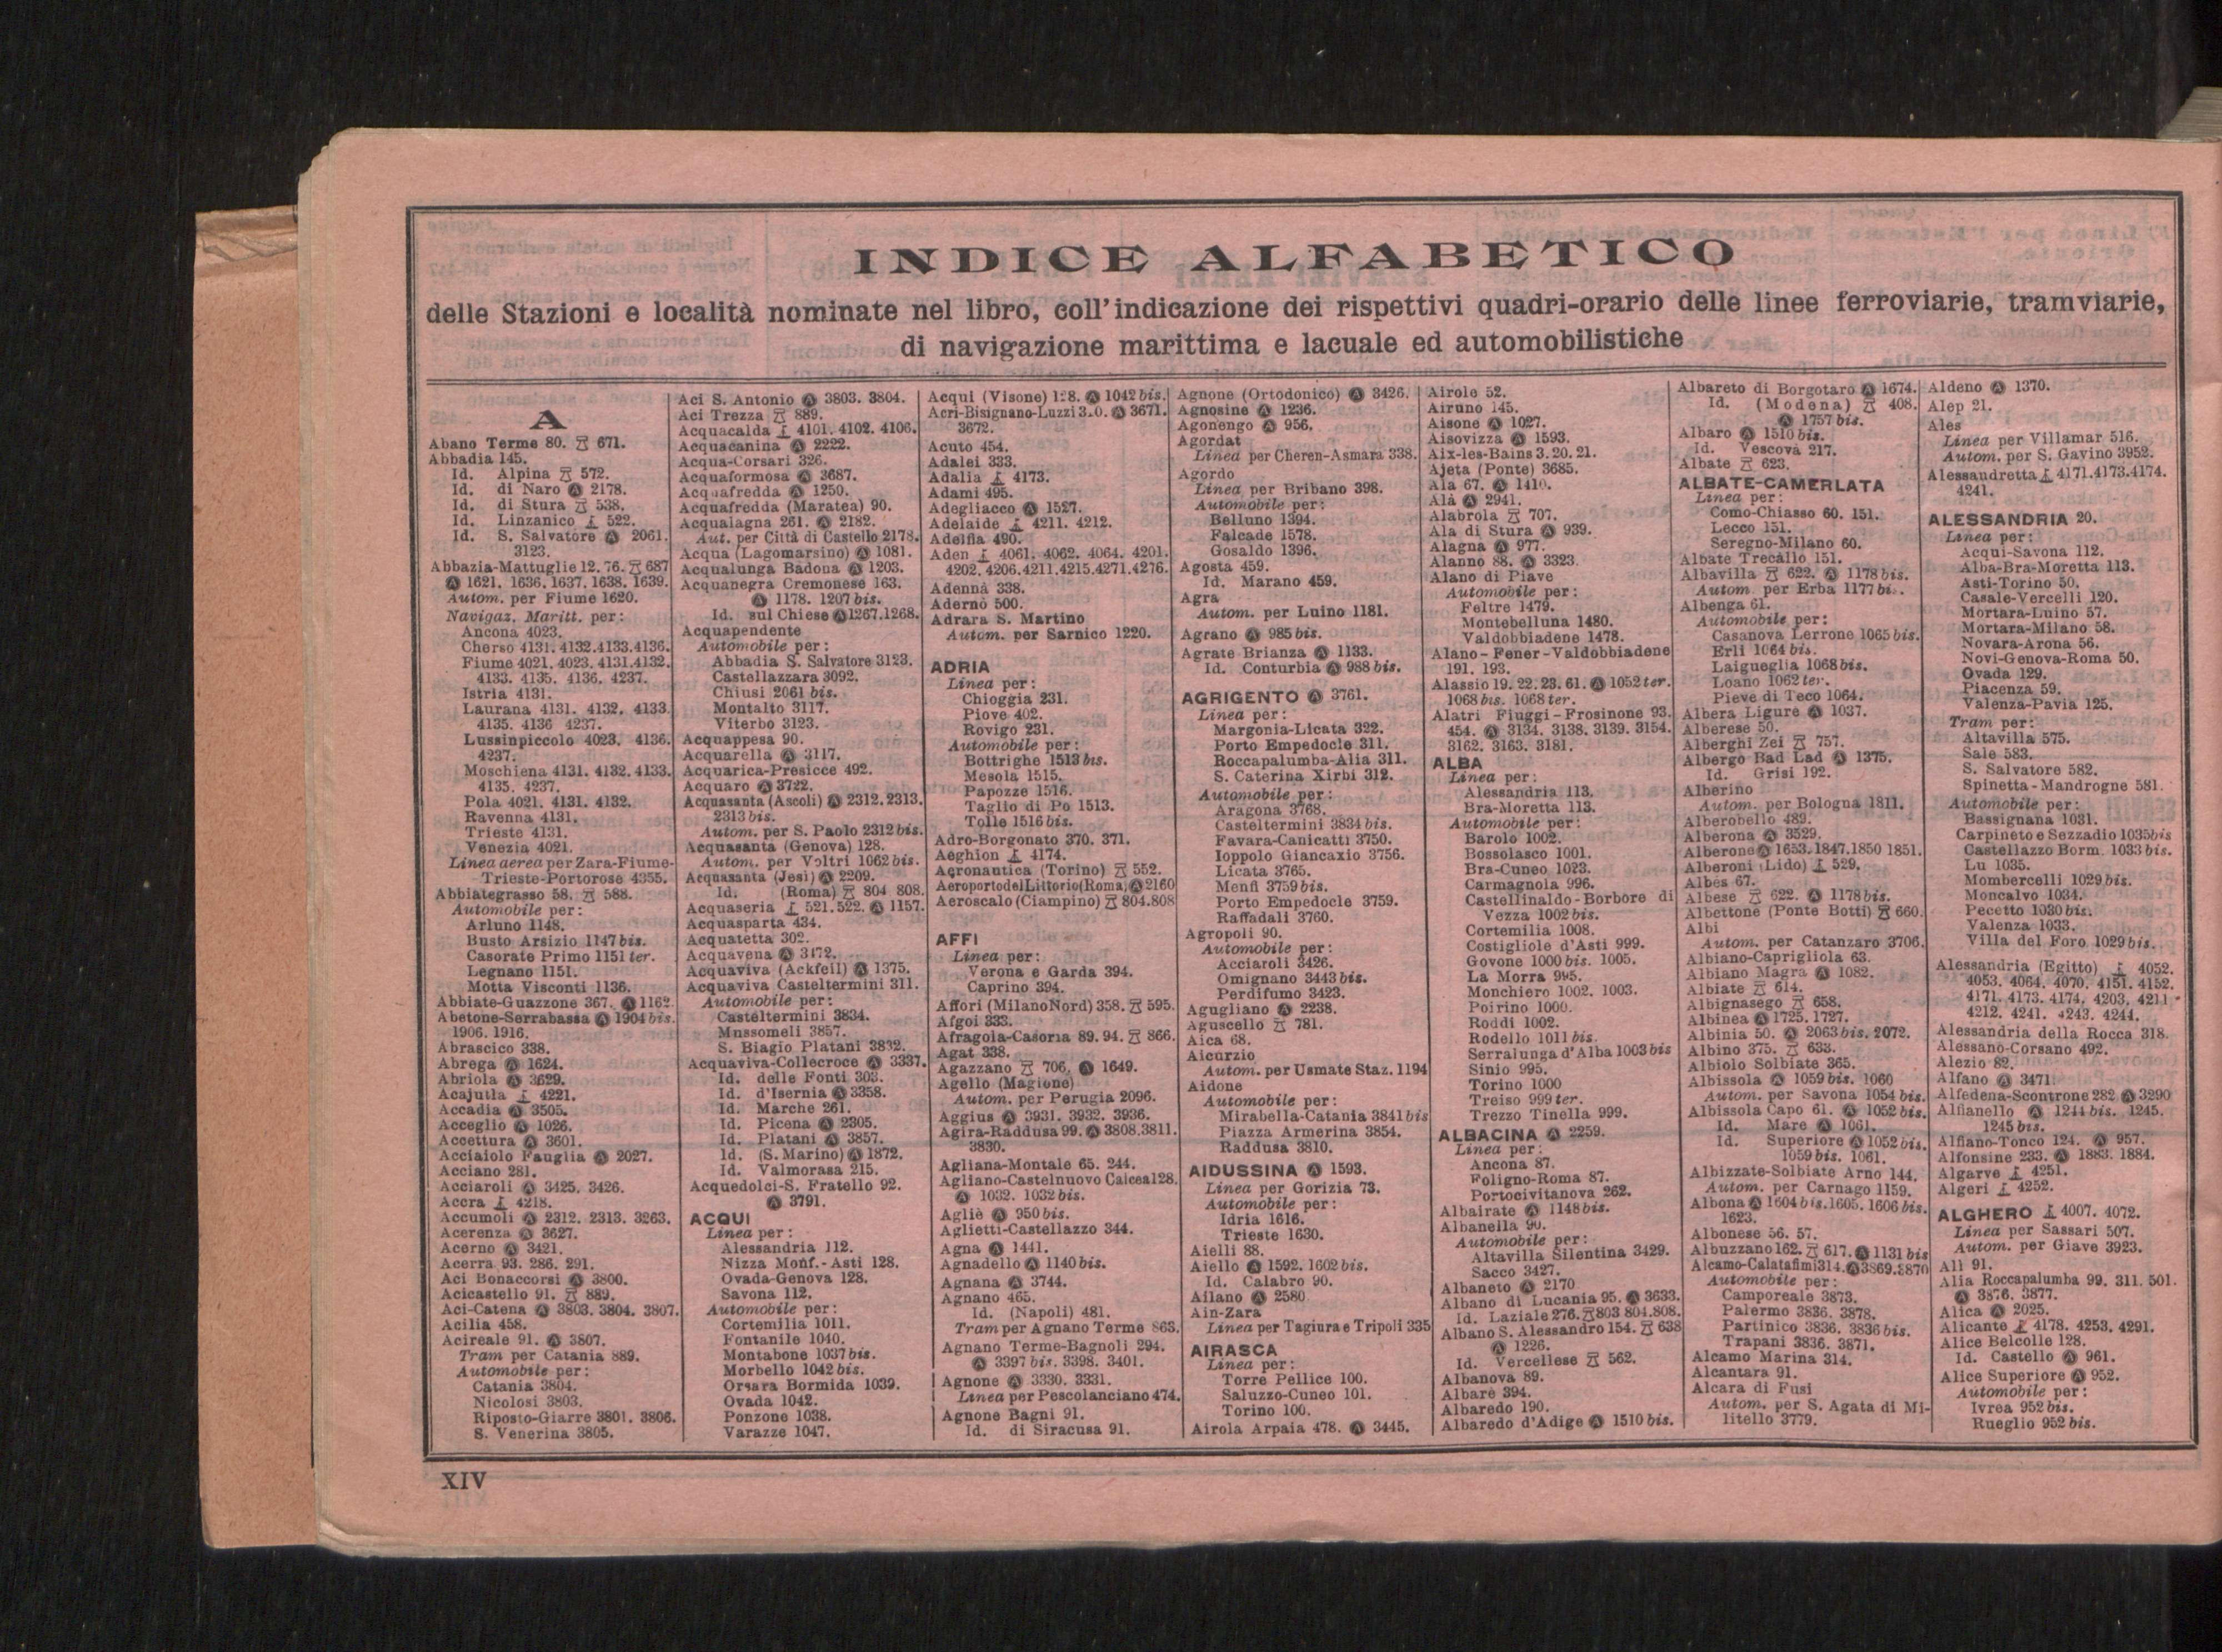 INDICE ALFABETICO
delle Stazioni e località nominate nel libro, coll'indicazione dei rispettivi quadri-orario delle linee ferroviarie, tramviarie,
di navigazione marittima e lacuale ed automobilistiche
A
Abano Terme 80. 671.
Abbadia 145.
Id. Alpina 572.
Id. di Naro Ⓐ 2178.
Id. di Stura 538.
Id. Linzanico 522.
Id. S. Salvatore Ⓐ 2061.
3123.
Abbazia-Mattuglie 12. 76. 687
Ⓐ 1621. 1636. 1637. 1638. 1639.
Autom. per Fiume 1620.
Navigaz. Maritt. per:
Ancona 4023.
Cherso 4131. 4132. 4133. 4136.
Fiume 4021. 4023. 4131. 4132.
4133. 4135. 4136. 4237.
Istria 4131.
Laurana 4131. 4132. 4133.
4135. 4136 4237.
Lussinpiccolo 4023. 4136.
4237.
Moschiena 4131. 4132. 4133.
4135. 4237.
Pola 4021. 4131. 4132.
Ravenna 4131.
Trieste 4131.
Venezia 4021.
Linea aerea per Zara-Fiume-
Trieste-Portorose 4355.
Abbiategrasso 58. 588.
Automobile per:
Arluno 1148.
Busto Arsizio 1147 bis.
Casorate Primo 1151 ter.
Legnano 1151.
Motta Visconti 1136.
Abbiate-Guazzone 367. Ⓐ 1162.
Abetone-Serrabassa Ⓐ 1904 bis.
1906. 1916.
Abrascico 338.
Abrega Ⓐ 1624.
Abriola Ⓐ 3629.
Acajutla 4221.
Accadia Ⓐ 3505.
Acceglio Ⓐ 1026.
Accettura Ⓐ 3601.
Acciaiolo Fauglia Ⓐ 2027.
Acciano 281.
Acciaroli Ⓐ 3425. 3426.
Accra 4218.
Accumoli Ⓐ 2312. 2313. 3263.
Acerenza Ⓐ 3627.
Acerno Ⓐ 3421.
Acerra 93. 286. 291.
Aci Bonaccorsi Ⓐ 3800.
Acicastello 91. 889.
Aci-Catena Ⓐ 3803. 3804. 3807.
Acilia 458.
Acireale 91. Ⓐ 3807.
Tram per Catania 889.
Automobile per:
Catania 3804.
Nicolosi 3803.
Riposto-Giarre 3801. 3806.
S. Venerina 3805.
Aci S. Antonio Ⓐ 3803. 3804.
Aci Trezza 889.
Acquacalda 4101. 4102. 4106.
Acquacanina Ⓐ 2222.
Acqua-Corsari 326.
Acquaformosa Ⓐ 3687.
Acquafredda Ⓐ 1250.
Acquafredda (Maratea) 90.
Acqualagna 261. Ⓐ 2182.
Aut. per Città di Castello 2178.
Acqua (Lagomarsino) Ⓐ 1081.
Acqualunga Badona Ⓐ 1203.
Acquanegra Cremonese 163.
Ⓐ 1178. 1207 bis.
Id. sul Chiese Ⓐ 1267. 1268.
Acquapendente
Automobile per:
Abbadia S. Salvatore 3123.
Castellazzara 3092.
Chiusi 2061 bis.
Montalto 3117.
Viterbo 3123.
Acquappesa 90.
Acquarella Ⓐ 3117.
Acquarica-Presicce 492.
Acquaro Ⓐ 3722.
Acquasanta (Ascoli) Ⓐ 2312. 2313.
2313 bis.
Autom. per S. Paolo 2312 bis.
Acquasanta (Genova) 128.
Autom. per Voltri 1062 bis.
Acquasanta (Jesi) Ⓐ 2209.
Id. (Roma) 804 808.
Acquaseria 521. 522. Ⓐ 1157.
Acquasparta 434.
Acquatetta 302.
Acquavena Ⓐ 3172.
Acquaviva (Ackfeil) Ⓐ 1375.
Acquaviva Casteltermini 311.
Automobile per:
Casteltermini 3834.
Mussomeli 3857.
S. Biagio Platani 3832.
Acquaviva-Collecroce Ⓐ 3337.
Id. delle Fonti 303.
Id. d'Isernia Ⓐ 3358.
Id. Marche 261.
Id. Picena Ⓐ 2305.
Id. Platani Ⓐ 3857.
Id. (S. Marino) Ⓐ 1872.
Id. Valmorasa 215.
Acquedolci-S. Fratello 92.
Ⓐ 3791.
ACQUI
Linea per:
Alessandria 112.
Nizza Monf.-Asti 128.
Ovada-Genova 128.
Savona 112.
Automobile per:
Cortemilia 1011.
Fontanile 1040.
Montabone 1037 bis.
Morbello 1042 bis.
Orsara Bormida 1039.
Ovada 1042.
Ponzone 1038.
Varazze 1047.
Acqui (Visone) 128. Ⓐ 1042 bis.
Acri-Bisignano-Luzzi Ⓐ 3671.
3672.
Acuto 454.
Adalei 333.
Adalia 4173.
Adami 495.
Adegliacco Ⓐ 1527.
Adelaide 4211. 4212.
Adelfia 490.
Aden 4061. 4062. 4064. 4201.
4202. 4206. 4211. 4215. 4271. 4276.
Adennà 338.
Adernò 500.
Adrara S. Martino
Autom. per Sarnico 1220.
ADRIA
Linea per:
Chioggia 231.
Piove 402.
Rovigo 231.
Automobile per:
Bottrighe 1513 bis.
Mesola 1515.
Papozze 1516.
Taglio di Po 1513.
Tolle 1516 bis.
Adro-Borgonato 370. 371.
Aeghion 4174.
Aeronautica (Torino) 552.
Aeroporto del Littorio (Roma) Ⓐ 2160
Aeroscalo (Ciampino) 804.808
AFFI
Linea per:
Verona e Garda 394.
Caprino 394.
Affori (Milano Nord) 358. 595.
Afgoi 333.
Afragola-Casoria 89. 94. 866.
Agat 338.
Agazzano 706. Ⓐ 1649.
Agello (Magione)
Autom. per Perugia 2096.
Aggius Ⓐ 3931. 3932. 3936.
Agira-Raddusa 99. Ⓐ 3808. 3811.
3830.
Agliana-Montale 65. 244.
Agliano-Castelnuovo Calcea 128.
Ⓐ 1032. 1032 bis.
Agliè Ⓐ 950 bis.
Aglietti-Castellazzo 344.
Agna Ⓐ 1441.
Agnadello Ⓐ 1140 bis.
Agnana Ⓐ 3744.
Agnano 465.
Id. (Napoli) 481.
Tram per Agnano Terme 863.
Agnano Terme-Bagnoli 294.
Ⓐ 3397 bis. 3398. 3401.
Agnone Ⓐ 3330. 3331.
Linea per Pescolanciano 474.
Agnone Bagni 91.
Id. di Siracusa 91.
Agnone (Ortodonico) Ⓐ 3426.
Agnosine Ⓐ 1236.
Agonengo Ⓐ 956.
Agordat
Linea per Cheren-Asmara 338.
Agordo
Linea per Bribano 398.
Automobile per:
Belluno 1394.
Falcade 1578.
Gosaldo 1396.
Agosta 459.
Id. Marano 459.
Agra
Autom. per Luino 1181.
Agrano Ⓐ 985 bis.
Agrate Brianza Ⓐ 1133.
Id. Conturbia Ⓐ 988 bis.
AGRIGENTO Ⓐ 3761.
Linea per:
Margonia-Licata 322.
Porto Empedocle 311.
Roccapalumba-Alia 311.
S. Caterina Xirbi 312.
Automobile per:
Aragona 3768.
Casteltermini 3834 bis.
Favara-Canicatti 3750.
Ioppolo Giancaxio 3756.
Licata 3765.
Menfi 3759 bis.
Porto Empedocle 3759.
Raffadali 3760.
Agropoli 90.
Automobile per:
Acciaroli 3426.
Omignano 3443 bis.
Perdifumo 3423.
Agugliano Ⓐ 2238.
Aguscello 781.
Aica 68.
Aicurzio
Autom. per Usmate Staz. 1194
Aidone
Automobile per:
Mirabella-Catania 3841 bis
Piazza Armerina 3854.
Raddusa 3810.
AIDUSSINA Ⓐ 1593.
Linea per Gorizia 73.
Automobile per:
Idria 1616.
Trieste 1630.
Aielli 88.
Aiello Ⓐ 1592. 1602 bis.
Id. Calabro 90.
Ailano Ⓐ 2580
Ain-Zara
Linea per Tagiura e Tripoli 335
AIRASCA
Linea per:
Torre Pellice 100.
Saluzzo-Cuneo 101.
Torino 100.
Airola Arpaia 478. Ⓐ 3445.
Airole 52.
Airuno 145.
Aisone Ⓐ 1027.
Aisovizza Ⓐ 1593.
Aix-les-Bains 3. 20. 21.
Ajeta (Ponte) 3685.
Ala 67. Ⓐ 1410.
Alà Ⓐ 2941.
Alabrola 707.
Ala di Stura Ⓐ 939.
Alagna Ⓐ 977.
Alanno 88. Ⓐ 3323.
Alano di Piave
Automobile per:
Feltre 1479.
Montebelluna 1480.
Valdobbiadene 1478.
Alano-Fener-Valdobbiadene
191. 193.
Alassio 19. 22. 23. 61. Ⓐ 1052 ter.
1068 bis. 1068 ter.
Alatri Fiuggi-Frosinone 93.
454. Ⓐ 3134. 3138. 3139. 3154.
3162. 3163. 3181.
ALBA
Linea per:
Alessandria 113.
Bra-Moretta 113.
Automobile per:
Barolo 1002.
Bossolasco 1001.
Bra-Cuneo 1023.
Carmagnola 996.
Castellinaldo-Borbore di
Vezza 1002 bis.
Cortemilia 1008.
Costigliole d'Asti 999.
Govone 1000 bis. 1005.
La Morra 995.
Monchiero 1002. 1003.
Poirino 1000.
Roddi 1002.
Rodello 1011 bis.
Serralunga d'Alba 1003 bis
Sinio 995.
Torino 1000
Treiso 999 ter.
Trezzo Tinella 999.
ALBACINA Ⓐ 2259.
Linea per:
Ancona 87.
Foligno-Roma 87.
Portocivitanova 262.
Albairate Ⓐ 1148 bis.
Albanella 90.
Automobile per:
Altavilla Silentina 3429.
Sacco 3427.
Albaneto Ⓐ 2170
Albano di Lucania 95. Ⓐ 3633.
Id. Laziale 276. 803 804.808.
Albano S. Alessandro 154. 638
Ⓐ 1226.
Id. Vercellese 562.
Albanova 89.
Albarè 394.
Albaredo 190.
Albaredo d'Adige Ⓐ 1510 bis.
Albareto di Borgotaro Ⓐ 1674.
Id. (Modena) 408.
Ⓐ 1757 bis.
Albaro Ⓐ 1510 bis.
Id. Vescovà 217.
Albate 623.
ALBATE-CAMERLATA
Linea per:
Como-Chiasso 60. 151.
Lecco 151.
Seregno-Milano 60.
Albate Trecallo 151.
Albavilla 622. Ⓐ 1178 bis.
Autom. per Erba 1177 bis.
Albenga 61.
Automobile per:
Casanova Lerrone 1065 bis.
Erli 1064 bis.
Laigueglia 1068 bis.
Loano 1062 ter.
Pieve di Teco 1064.
Albera Ligure Ⓐ 1037.
Alberese 50.
Alberghi Zei 757.
Albergo Bad Lad Ⓐ 1375.
Id. Grisi 192.
Alberino
Autom. per Bologna 1811.
Alberobello 489.
Alberona Ⓐ 3529.
Alberone Ⓐ 1653. 1847. 1850 1851.
Alberoni (Lido) 529.
Albes 67.
Albese 622. Ⓐ 1178 bis.
Albettone (Ponte Botti) 660.
Albi
Autom. per Catanzaro 3706.
Albiano-Caprigliola 63.
Albiano Magra Ⓐ 1082.
Albiate 614.
Albignasego 658.
Albinea Ⓐ 1725. 1727.
Albinia 50. Ⓐ 2063 bis. 2072.
Albino 375. 633.
Albiolo Solbiate 365.
Albissola Ⓐ 1059 bis. 1060
Autom. per Savona 1054 bis.
Albissola Capo 61. Ⓐ 1052 bis.
Id. Mare Ⓐ 1061.
Id. Superiore Ⓐ 1052 bis.
1059 bis. 1061.
Albizzate-Solbiate Arno 144.
Autom. per Carnago 1159.
Albona Ⓐ 1604 bis. 1605. 1606 bis.
1623.
Albonese 56. 57.
Albuzzano 162. 617. Ⓐ 1131 bis
Alcamo-Calatafimi 314. Ⓐ 3869. 3870
Automobile per:
Camporeale 3873.
Palermo 3836. 3878.
Partinico 3836. 3836 bis.
Trapani 3836. 3871.
Alcamo Marina 314.
Alcantara 91.
Alcara di Fusi
Autom. per S. Agata di Mi-
litello 3779.
Aldeno Ⓐ 1370.
Alep 21.
Ales
Linea per Villamar 516.
Autom. per S. Gavino 3952.
Alessandretta 4171. 4173. 4174.
4241.
ALESSANDRIA 20.
Linea per:
Acqui-Savona 112.
Alba-Bra-Moretta 113.
Asti-Torino 50.
Casale-Vercelli 120.
Mortara-Luino 57.
Mortara-Milano 58.
Novara-Arona 56.
Novi-Genova-Roma 50.
Ovada 129.
Piacenza 59.
Valenza-Pavia 125.
Tram per:
Altavilla 575.
Sale 583.
S. Salvatore 582.
Spinetta-Mandrogne 581.
Automobile per:
Bassignana 1031.
Carpineto e Sezzadio 1035 bis
Castellazzo Borm. 1033 bis.
Lu 1035.
Mombercelli 1029 bis.
Moncalvo 1034.
Pecetto 1030 bis.
Valenza 1033.
Villa del Foro 1029 bis.
Alessandria (Egitto) 4052.
4053. 4064. 4070. 4151. 4152.
4171. 4173. 4174. 4203. 4211.
4212. 4241. 4243. 4244.
Alessandria della Rocca 318.
Alessano-Corsano 492.
Alezio 82.
Alfano Ⓐ 3471.
Alfedena-Scontrone 282 Ⓐ 3290
Alfianello Ⓐ 1244 bis. 1245.
1245 bis.
Alfiano-Tonco 124. Ⓐ 957.
Alfonsine 233. Ⓐ 1883. 1884.
Algarve 4251.
Algeri 4252.
ALGHERO 4007. 4072.
Linea per Sassari 507.
Autom. per Giave 3923.
Alì 91.
Alia Roccapalumba 99. 311. 501.
Ⓐ 3876. 3877.
Alica Ⓐ 2025.
Alicante 4178. 4253. 4291.
Alice Belcolle 128.
Id. Castello Ⓐ 961.
Alice Superiore Ⓐ 952.
Automobile per:
Ivrea 952 bis.
Rueglio 952 bis.
XIV